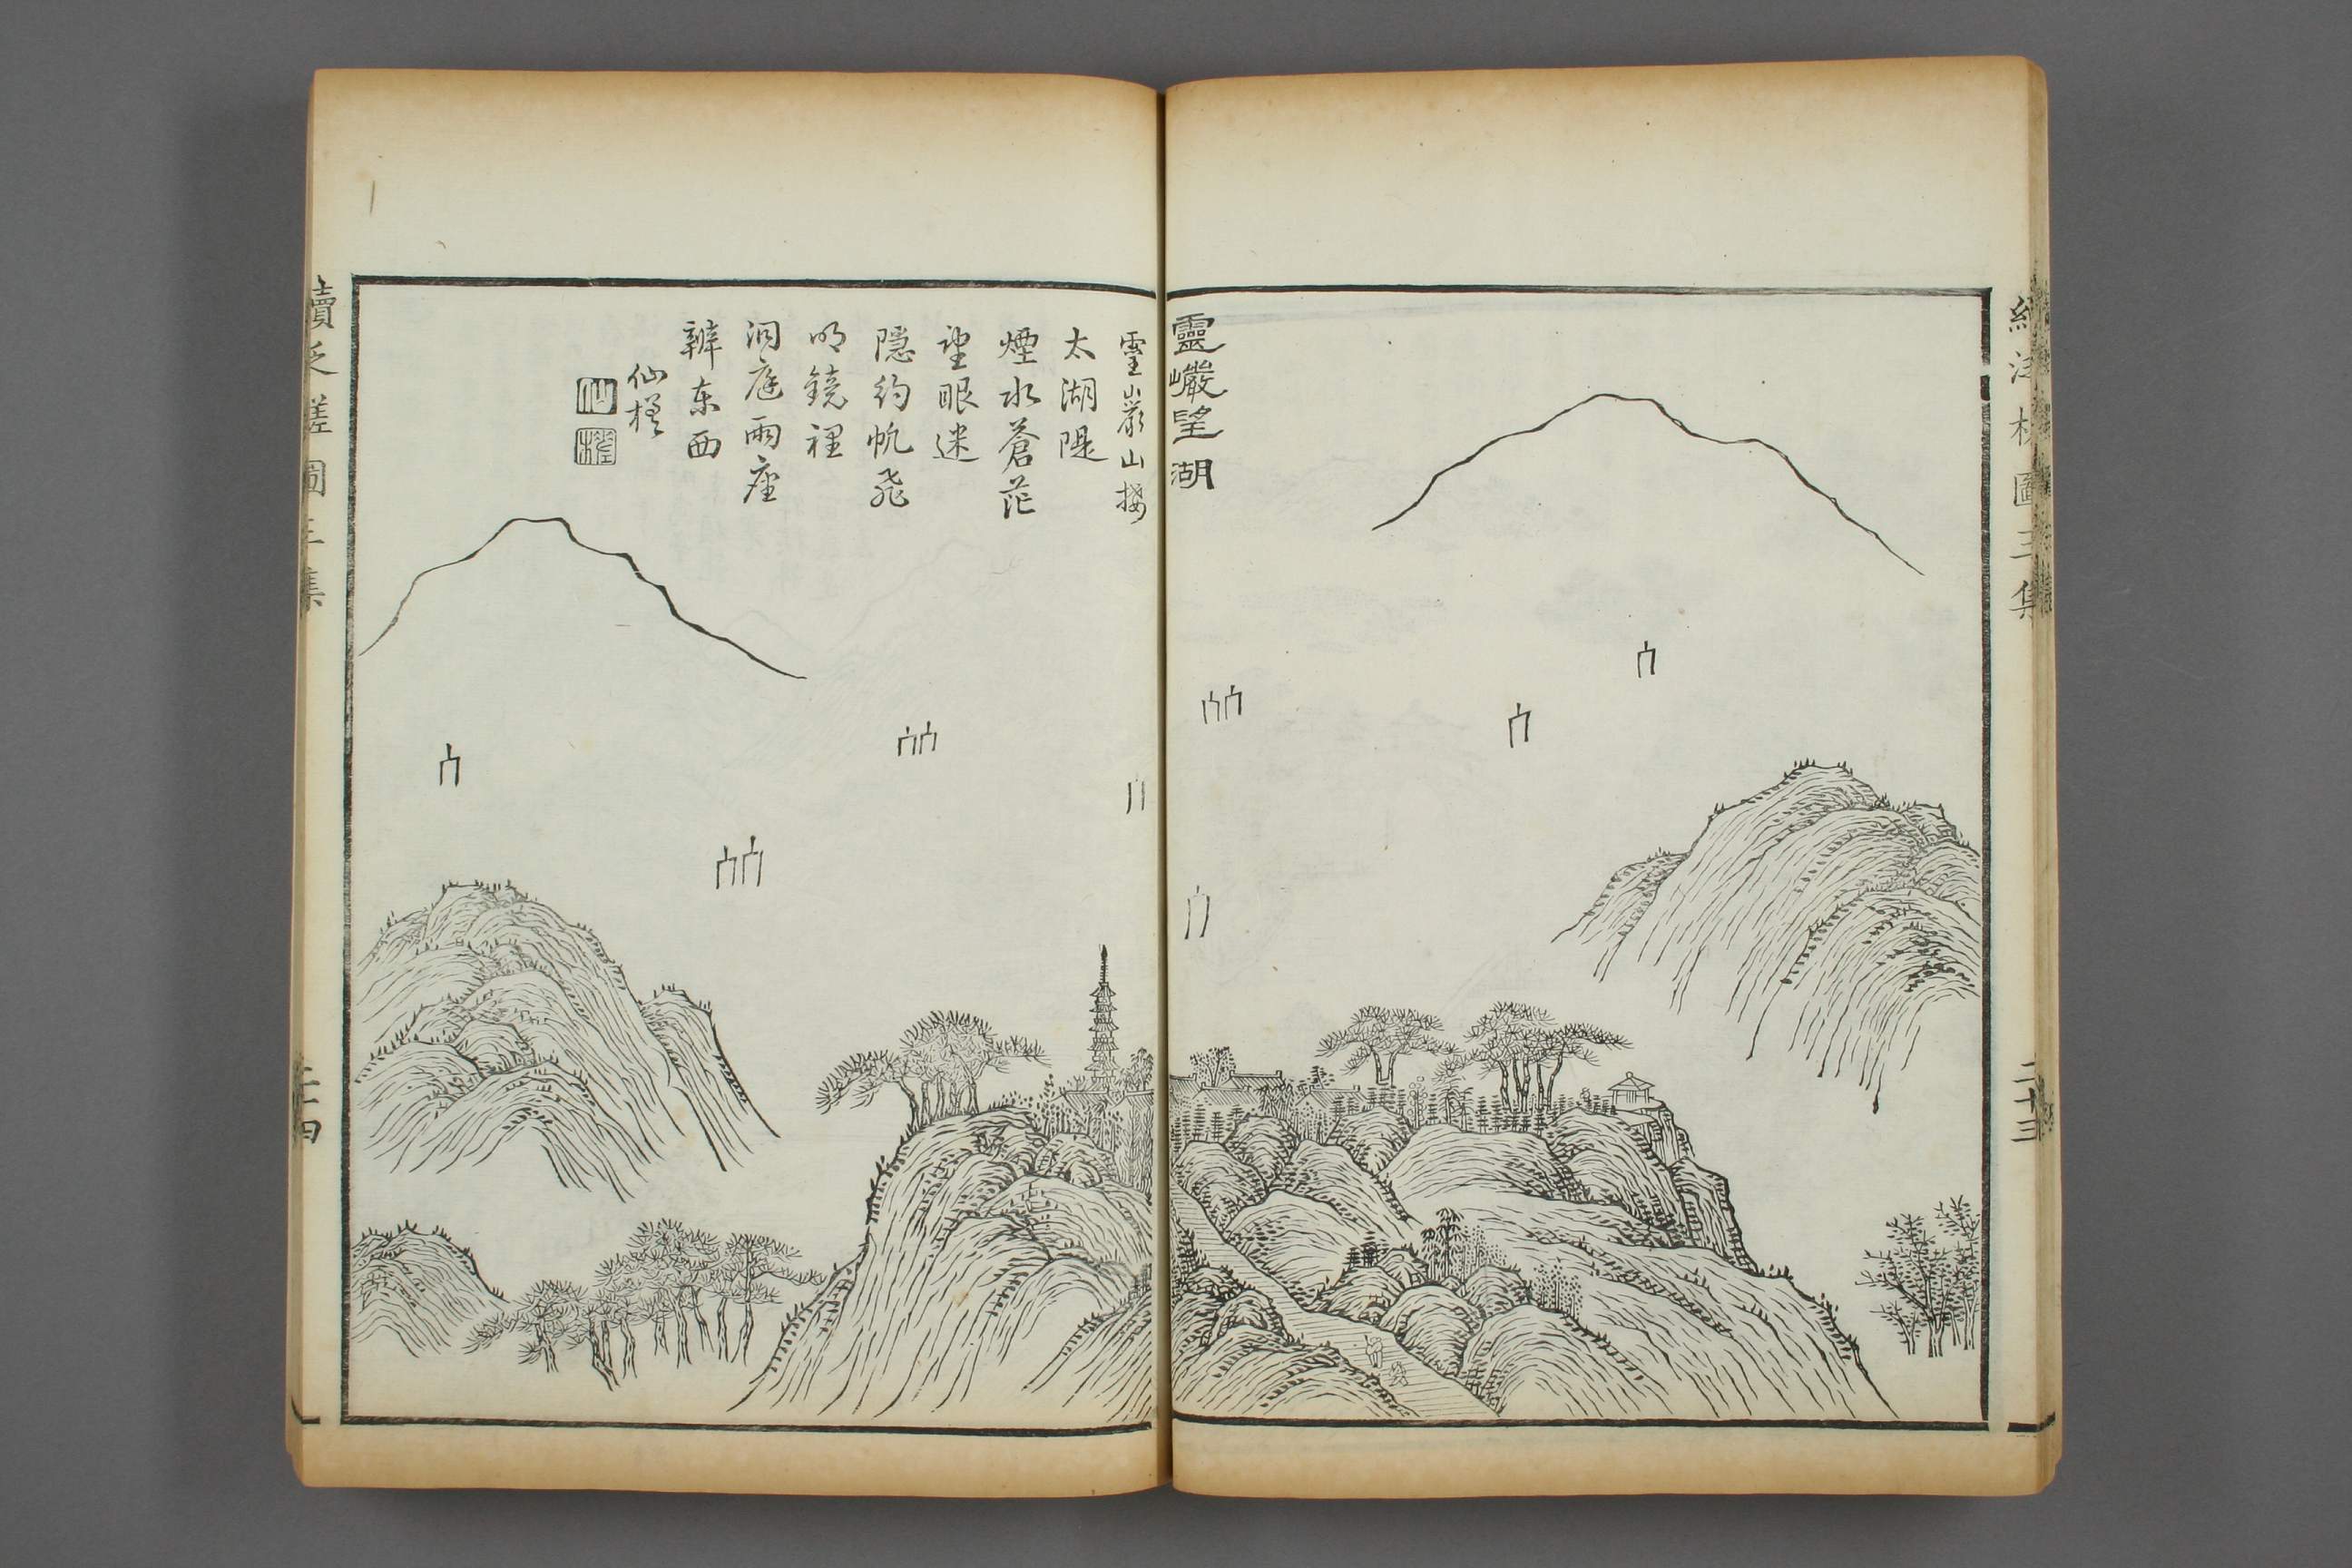 續泛槎圖三集
二十三
靈巖望湖
靈巖山接
太湖隄
煙水蒼茫
望眼迷
隱約帆飛
明鏡裡
洞庭兩座
辨東西
仙槎
仙
槎
續泛槎圖三集
二十四